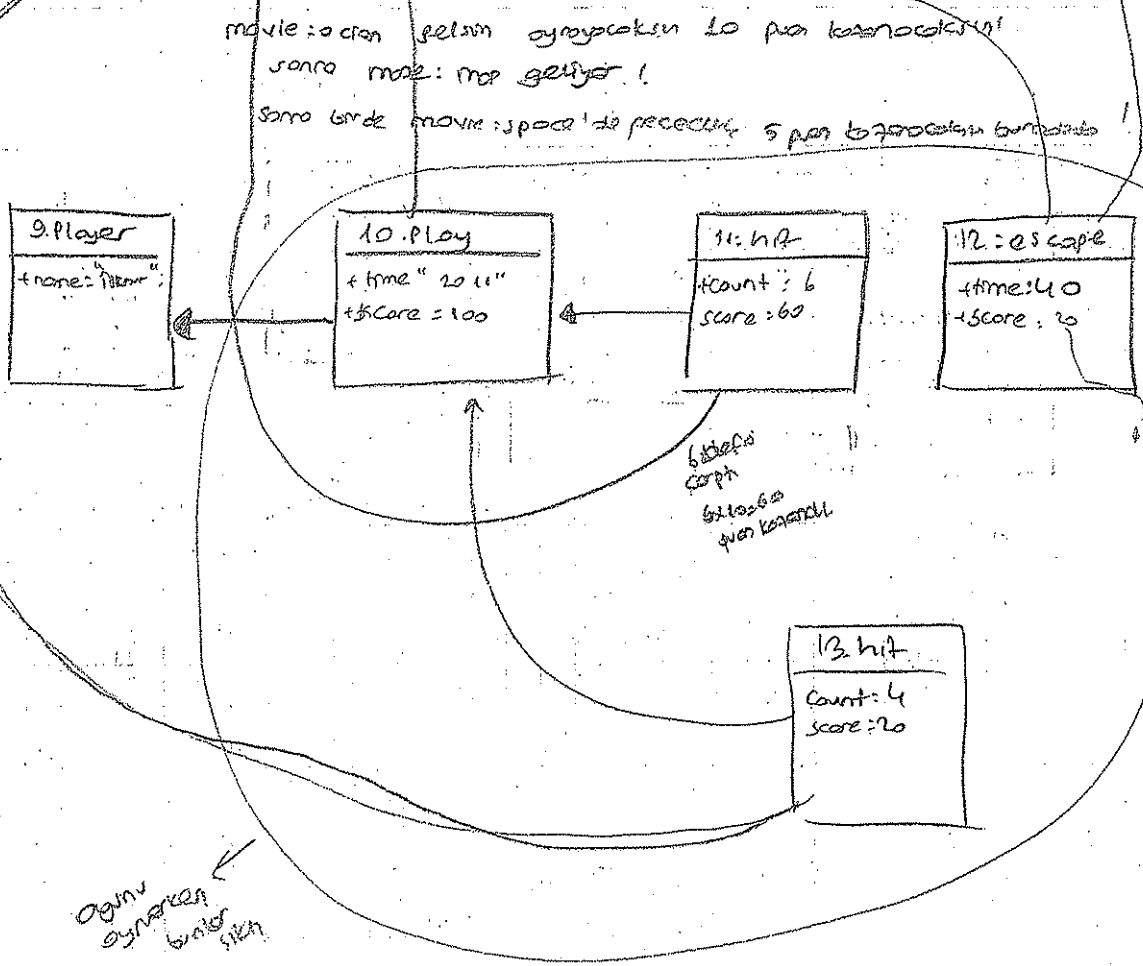 movie: ocean gelsin oynayacaksın 10 puan kazanacaksın!
sonra move: map geliyor!
sonra birde movie: space'de 5 puan kazanacaksın
9.Player
+name="
10.Play
+time" 2011"
+score = 100
11: hit
+count : 6
score : 60
12 : escape
+time:40
+score : 20
6 hedefi
çarptı
6x10=60
puan kazandı
13. hit
Count: 4
score : 20
oyunu
oynarken
bunlar